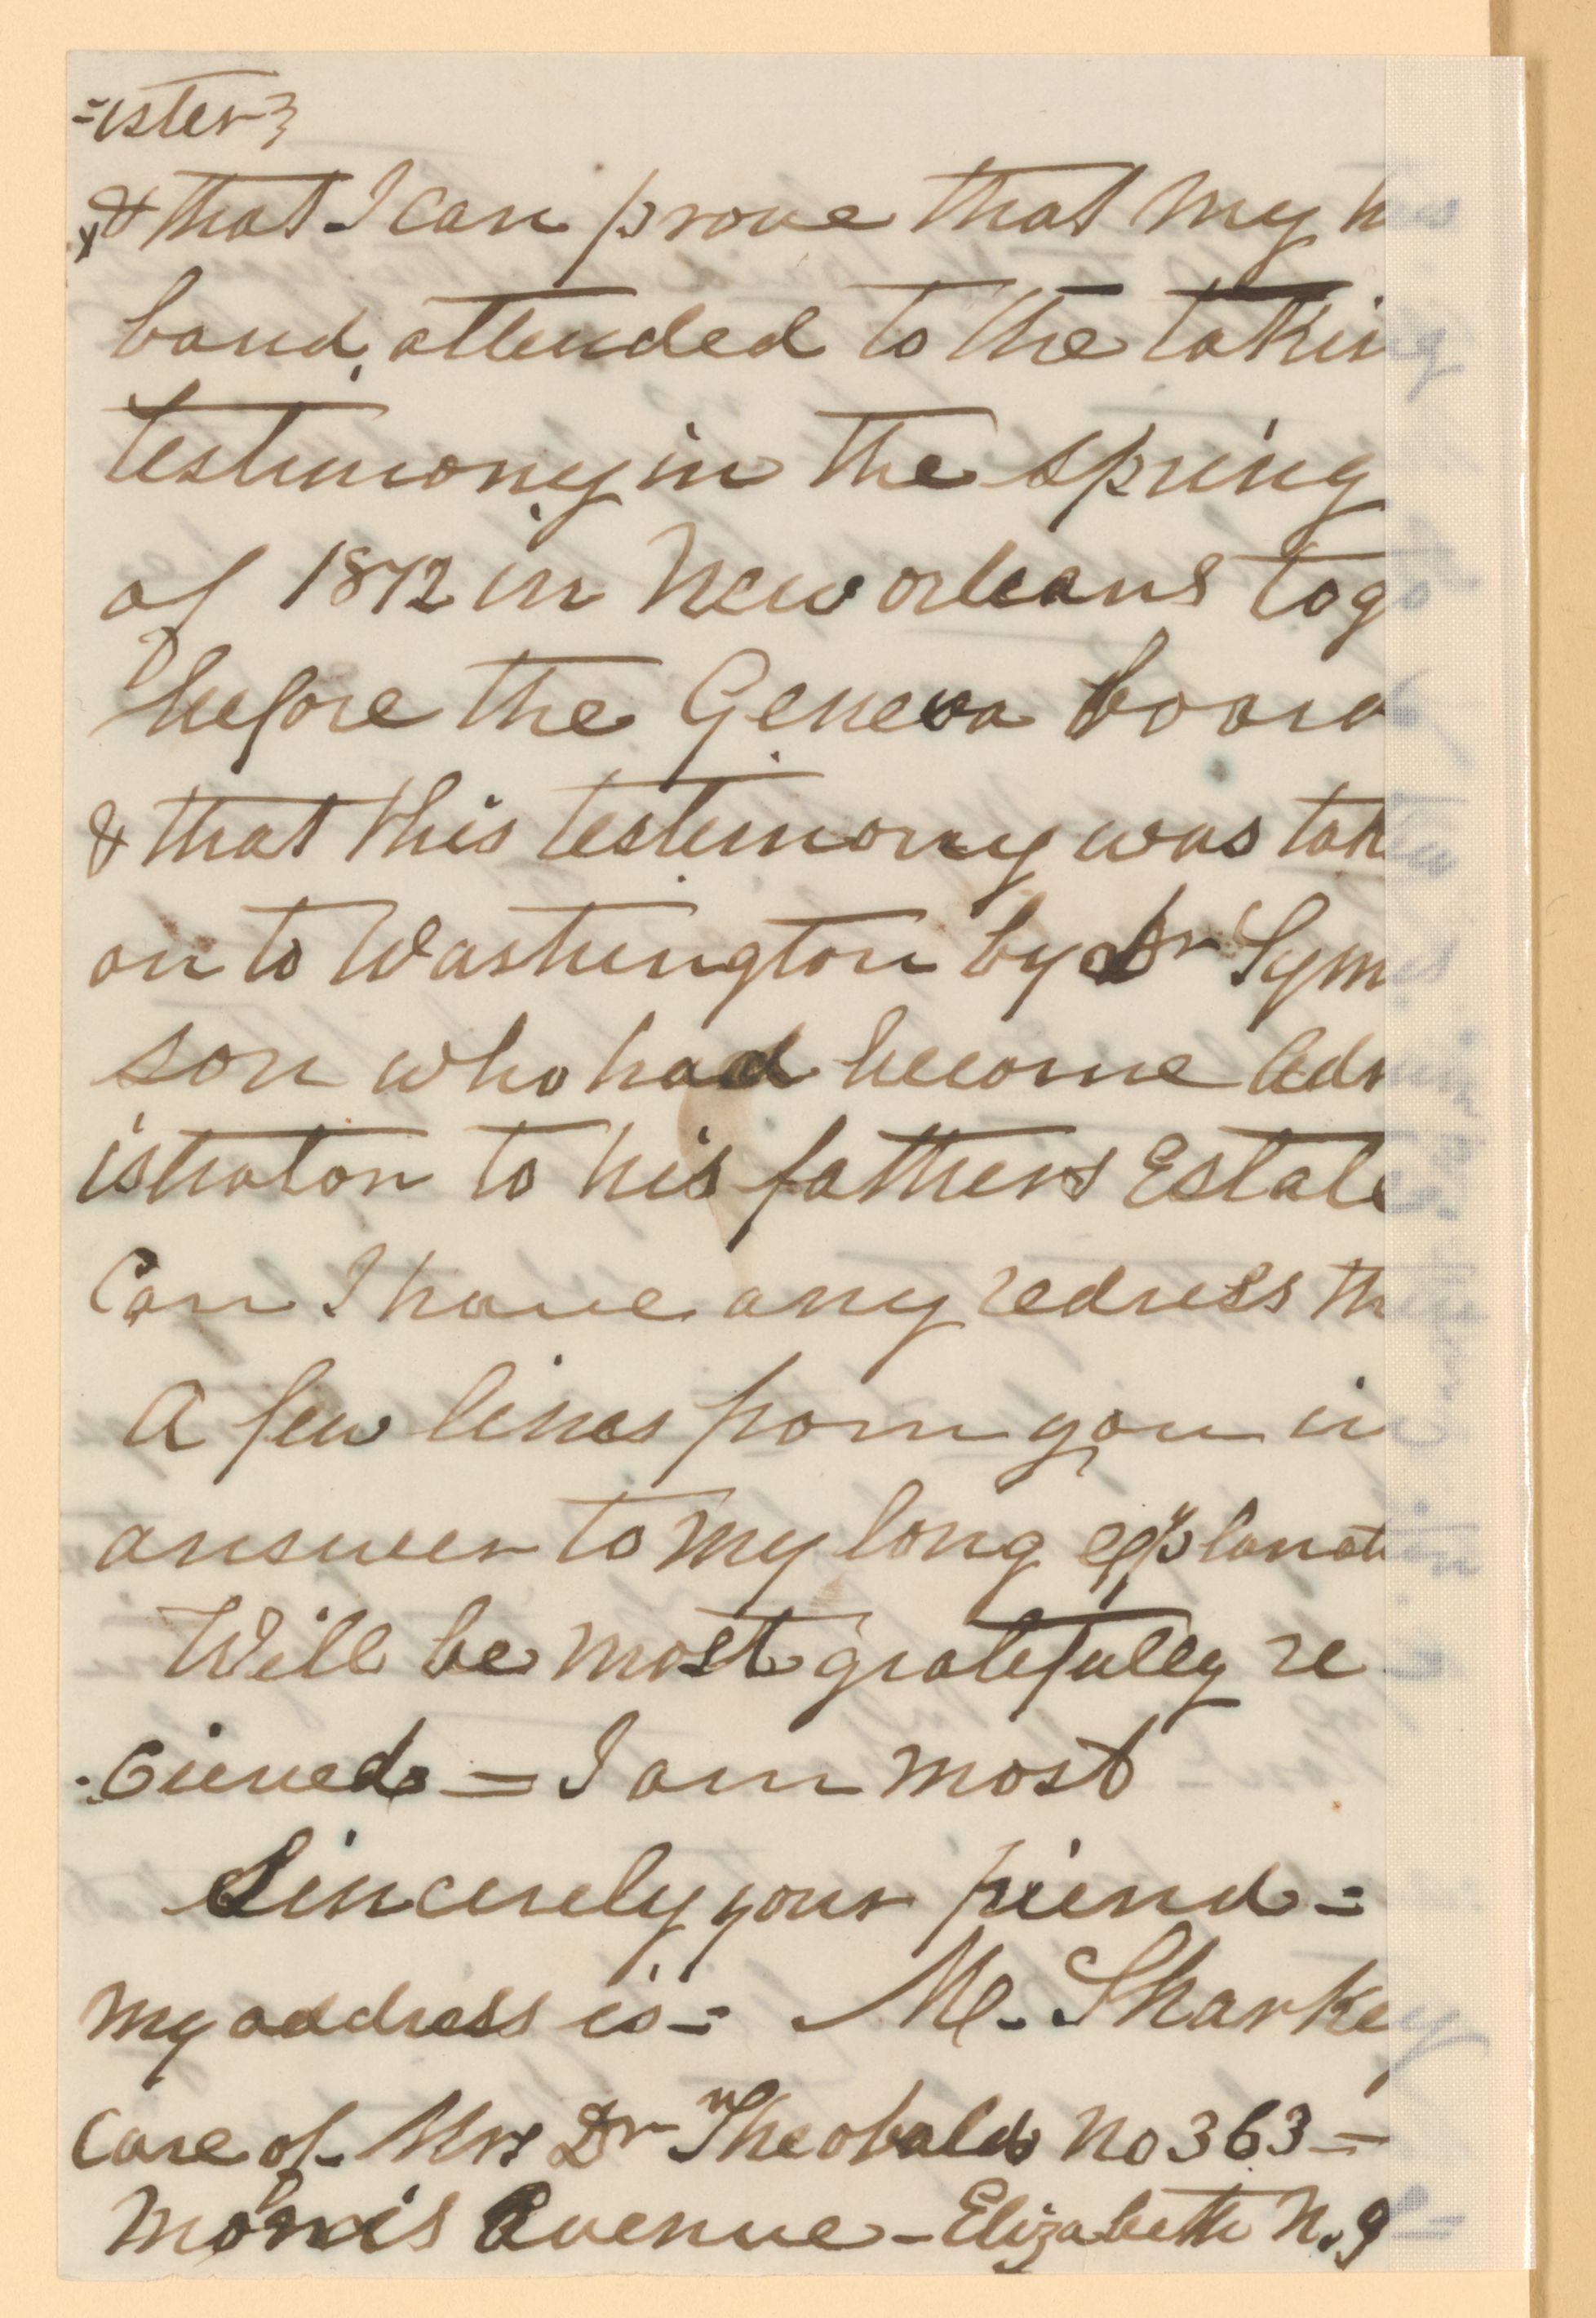 =ister}
& that I can prove that my hus
band, attended to the taking
testimony in the spring
of 1872 in New orleans to go
before the Geneva board
& that this testimony was taken
on to Washington by Dr Syms
son who had become Admin
istrator to his fathers Estate
Can I have any redress then
A few lines from you in
answer to my long explanation
Will be most gratefully re
=cieved = I am most
Sincerely your friend =
my address is = M. Sharkey
care of Mrs Dr Theobalds No 363 =
Morris Avenue - Elizabeth N. J =